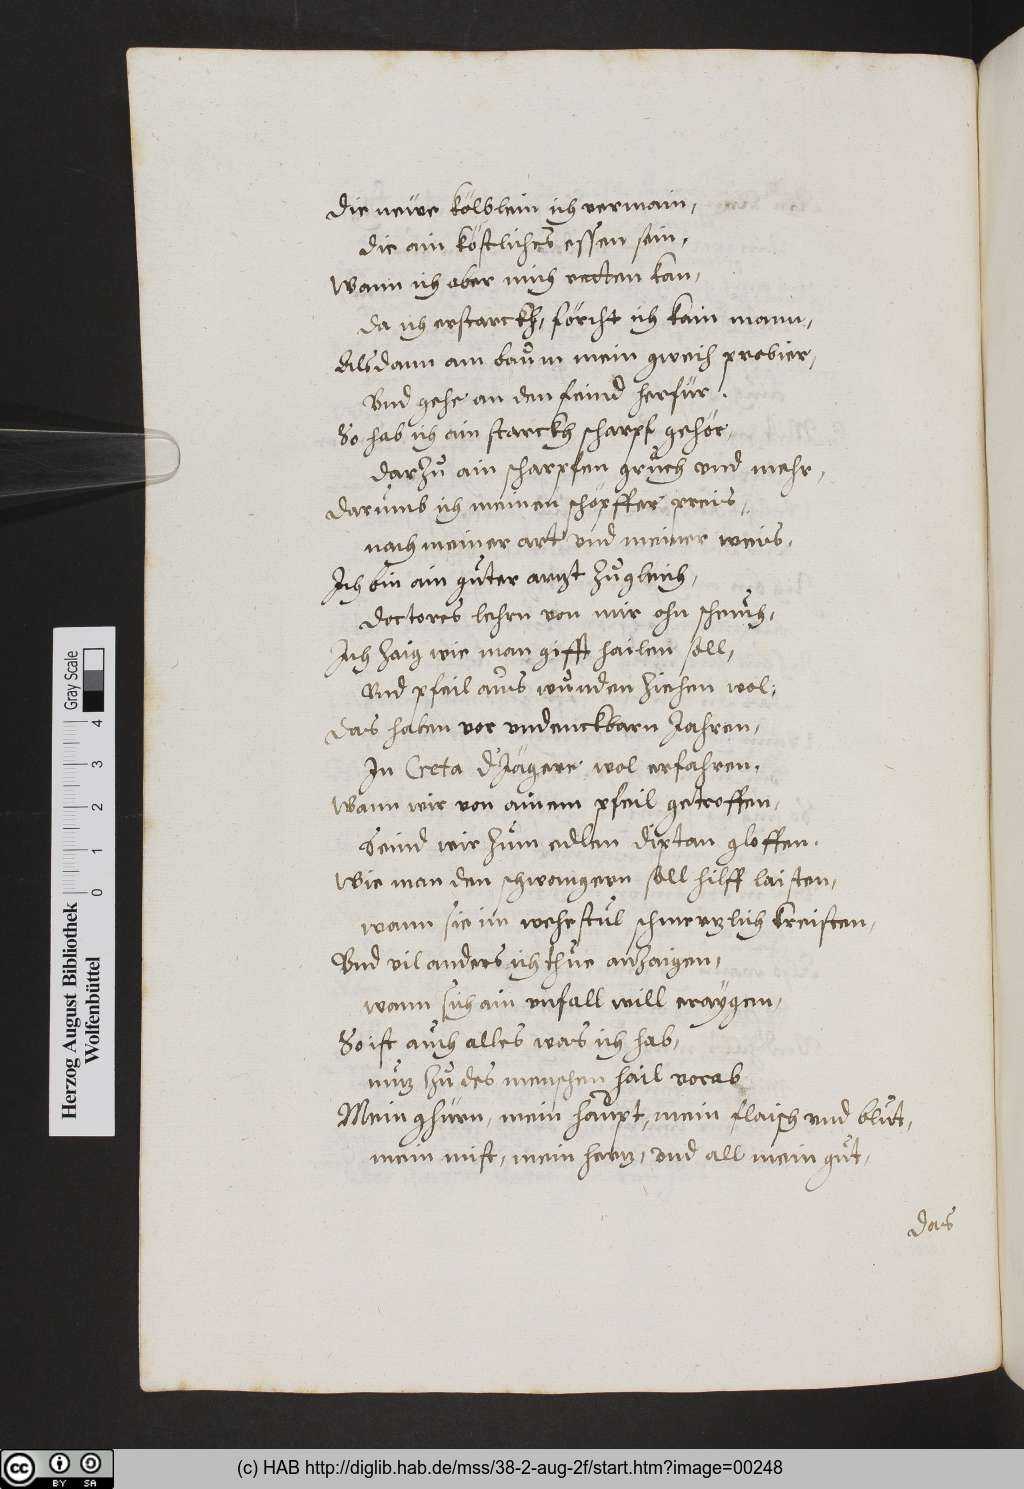 die newe kölblein ich vermain,
die ain köstliches essen sein,
Wann ich aber mich retten kan,
da ich erstarckh, förcht ich kain mann,
Alsdann am baum mein gweih probier,
Vnd gehe an den feind herfür.
So hab ich ain starckh scharpf gehör,
darzu ain scharpfen gruch vnd mehr,
darumb ich meinen schöpffer preis,
nach meiner art vnd meiner weis,
Ich bin ain guter artzt zugleich,
doctores lehrn von mir ohn scheuch,
Ich zaig wie man gifft hailen soll,
Vnd pfeil aus wunden ziehen wol,
das haben vor vndenckbarn Jahren,
In Creta d'Jägere wol erfahren.
Wann wir von ainem pfeil getroffen,
Seind wir zum edlen diptan gloffen.
Wie man den schwangern soll hilff laisten,
wann sie im wehestul schmertzlich kreisten,
Vnd vil anders ich thue anzaigen,
wann sich ain vnfall will eraygen,
So ist auch alles was ich hab,
nutz zu des menschen hail vorab
Mein ghürn, mein haupt, mein flaisch vnd blut,
mein mist, mein hertz, vnd all mein gut,
das
Herzog August Bibliothek
Wolfenbüttel
Gray Scale
0 1 2 3 4
cc BY SA
(c) HAB http://diglib.hab.de/mss/38-2-aug-2f/start.htm?image=00248